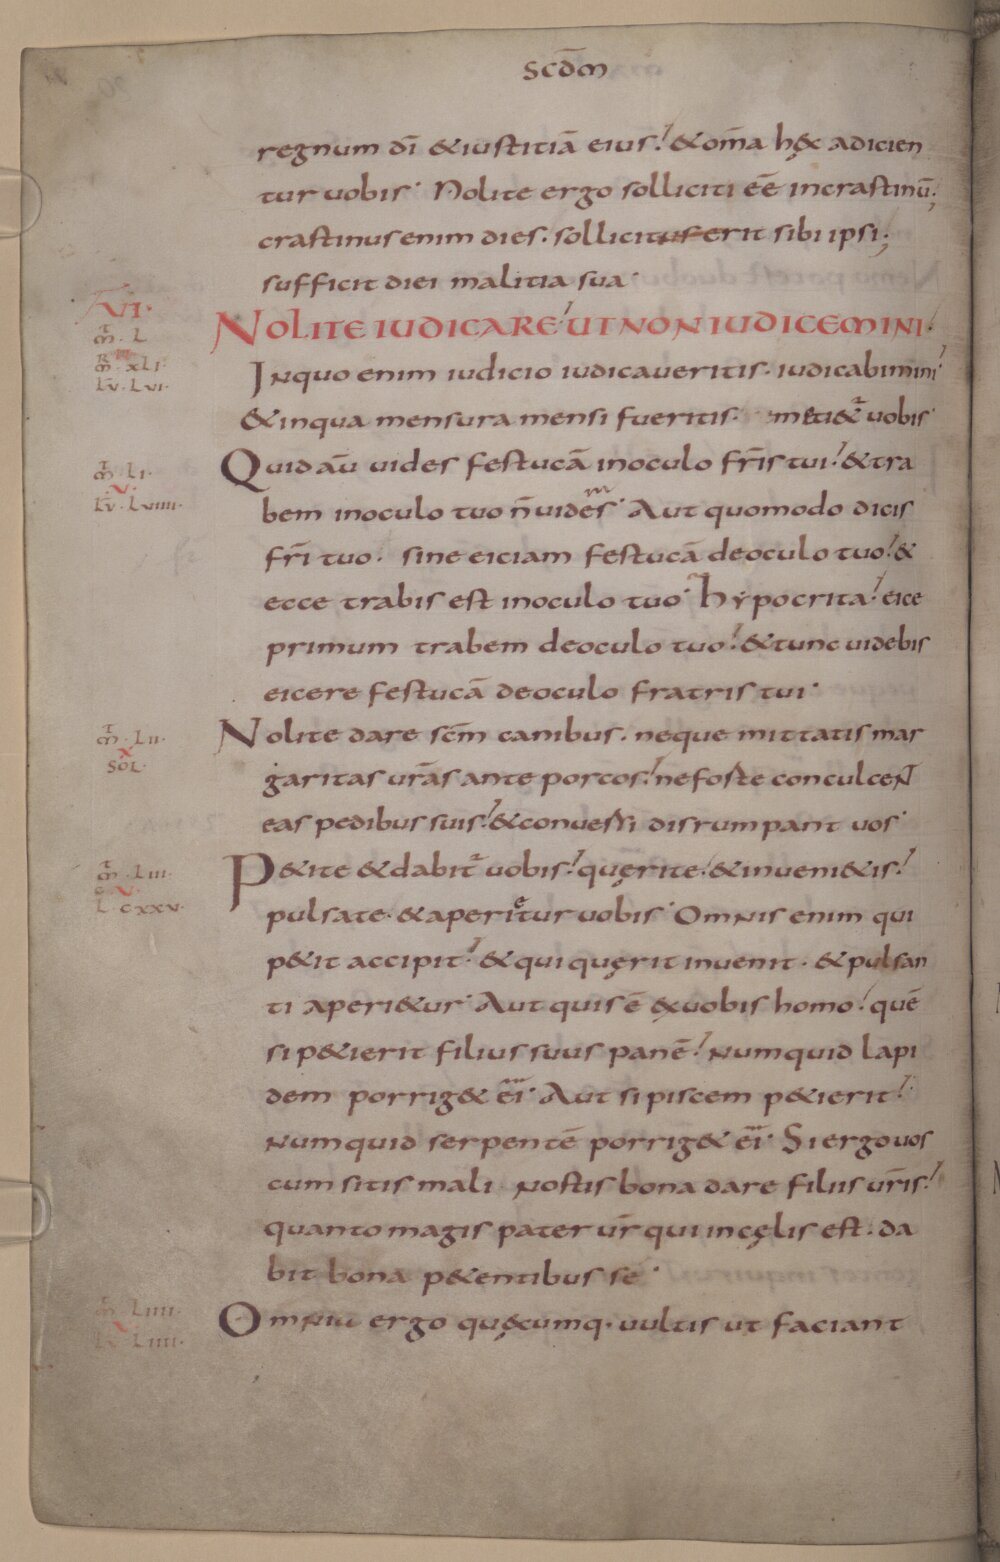 SCD̄M
regnum dī &iustitiā eius. &om̄a hę& adicien
tur uobis· Nolite ergo solliciti eē incrastinū;
crastinus enim dies. sollicitus erit sibi ipsi;
sufficit diei malitia sua·
VI·
NOLITE IUDICARE UT NON IUDICEMINI·
m̄· L
m̄· XLI·
LV̄· LVI·
Inquo enim iudicio iudicaueritis· iudicabimini
&inqua mensura mensi fueritis· meti&ur uobis
m̄· LI·
V·
LV̄· LVIIII·
Quid aū uides festucā inoculo fr̄is tui· &tra
bem inoculo tuo n̄ uides· Aut quomodo dicis
fr̄i tuo· sine eiciam festucā deoculo tuo· &
ecce trabis est inoculo tuo· hẏpocrita· eice
primum trabem deoculo tuo· &tunc uidebis
eicere festucā deoculo fratris tui·
m̄· LII·
X
SOL·
Nolite dare sc̄m canibus· neque mittatis mar
garitas ur̄as ante porcos· neforte conculcent
eas pedibus suis· &conuersi disrumpant uos·
m̄· LIII·
V·
L· CXXV·
P&ite &dabit̄ uobis· quęrite· &inueni&is·
pulsate· &aperietur uobis· Omnis enim qui
p&it accipit· &qui quęrit inuenit· &pulsan
ti aperi&ur· Aut quis ē ęxuobis homo· quē
si p&ierit filius suus panē· Numquid lapi
dem porrig& ei· Aut si piscem p&ierit·
Numquid serpentē porrig& ei· Si ergo uos
cum sitis mali· nostis bona dare filiis ur̄is·
quanto magis pater ur̄ qui incęlis est· da
bit bona p&entibus se·
m̄· LIIII·
V·
LV̄· LIIII·
Omniu ergo quęcumq· uultis ut faciant